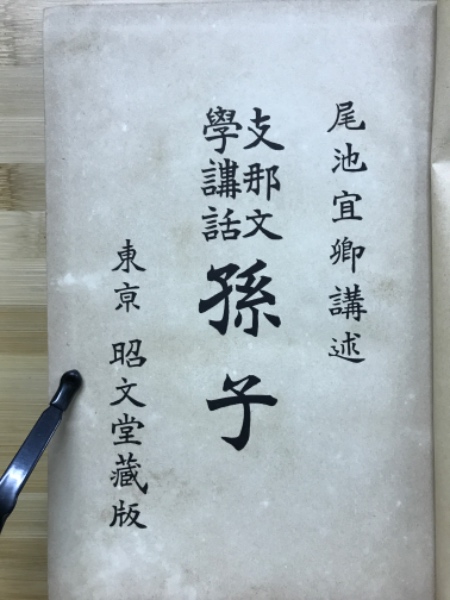 尾池宜卿講述
支那文
學講話
孫子
東京 昭文堂藏版